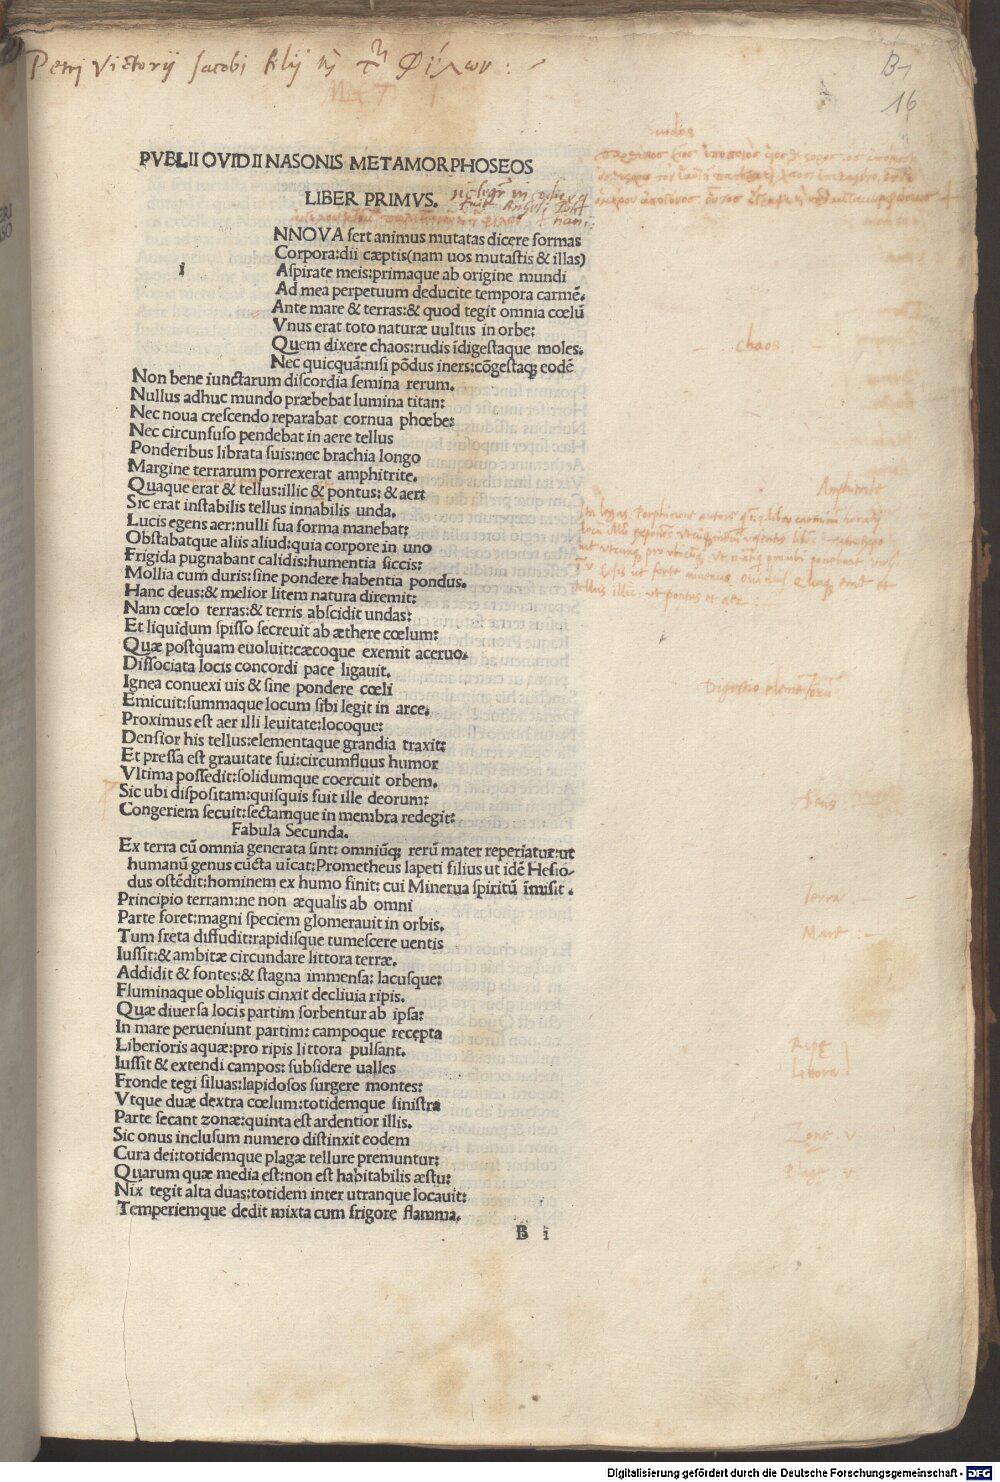 Petri Victorij Jacobi filij καὶ τῶν φίλων :
B1
16
PVBLII OVIDII NASONIS METAMORPHOSEOS
LIBER PRIMVS.
NNOVA fert animus mutatas dicere formas
Corpora:dii cæptis(nam uos mutastis & illas)
i
Aspirate meis:primaque ab origine mundi
Ad mea perpetuum deducite tempora carmē.
Ante mare & terras:& quod tegit omnia cœlū
Vnus erat toto naturæ uultus in orbe:
Quem dixere chaos:rudis īdigestaque moles.
chaos
Nec quicquā:nisi pōdus iners:cōgestaq; eodē
Non bene iunctarum discordia semina rerum.
Nullus adhuc mundo præbebat lumina titan:
Nec noua crescendo reparabat cornua phœbe:
Nec circunfuso pendebat in aere tellus
Ponderibus librata suis:nec brachia longo
Margine terrarum porrexerat amphitrite.
Amphitrite
Quaque erat & tellus:illic & pontus: & aer:
Sic erat instabilis tellus innabilis unda.
Lucis egens aer:nulli sua forma manebat:
Obstabatque aliis aliud:quia corpore in uno
Frigida pugnabant calidis:humentia siccis:
Mollia cum duris:sine pondere habentia pondus.
Hanc deus:& melior litem natura diremit:
tellus illic: ut pontus et aer :
Nam cœlo terras:& terris abscidit undas:
Et liquidum spisso secreuit ab æthere cœlum:
Quæ postquam euoluit:cæcoque exemit aceruo.
Dissociata locis concordi pace ligauit.
Ignea conuexi uis & sine pondere cœli
Emicuit:summaque locum sibi legit in arce.
Proximus est aer illi leuitate:locoque:
Densior his tellus:elementaque grandia traxit:
Et pressa est grauitate sui:circumfluus humor
Vltima possedit:solidumque coercuit orbem.
Sic ubi dispositam:quisquis fuit ille deorum:
Congeriem secuit:sectamque in membra redegit:
Fabula Secunda.
Ex terra cū omnia generata sint: omniūq; rerū mater reperiatur:ut
humanū genus cūcta uīcat:Prometheus Iapeti filius ut idē Hesio-
dus ostēdit:hominem ex humo finit: cui Minerua spiritū īmisit .
Principio terram:ne non æqualis ab omni
Terra
Parte foret:magni speciem glomerauit in orbis.
Tum freta diffudit:rapidisque tumescere uentis
Mare
Iussit:& ambitæ circundare littora terræ.
Addidit & fontes:& stagna immensa: lacusque:
Fluminaque obliquis cinxit decliuia ripis.
Quæ diuersa locis partim sorbentur ab ipsa:
In mare perueniunt partim: campoque recepta
Liberioris aquæ:pro ripis littora pulsant.
Ripę
Iussit & extendi campos: subsidere ualles
Littora
Fronde tegi siluas:lapidosos surgere montes:
Vtque duæ dextra cœlum:totidemque sinistra
Parte secant zonæ:quinta est ardentior illis.
Sic onus inclusum numero distinxit eodem
Zone . v
Cura dei:totidemque plagæ tellure premuntur:
Quarum quæ media est:non est habitabilis æstu:
Plage v
Nix tegit alta duas:totidem inter utranque locauit:
Temperiemque dedit mixta cum frigore flamma.
B i
Digitalisierung gefördert durch die Deutsche Forschungsgemeinschaft - DFG